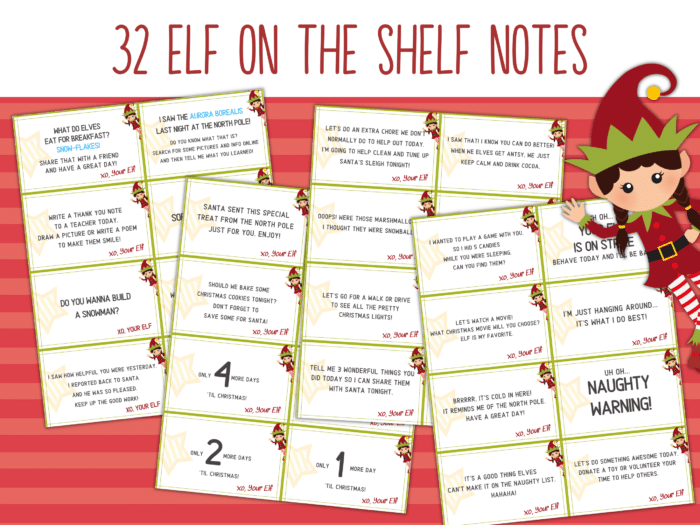 32 ELF ON THE SHELF NOTES
WHAT DO ELVES
EAT FOR BREAKFAST?
SNOW-FLAKES!
SHARE THAT WITH A FRIEND
AND HAVE A GREAT DAY!
xo, Your Elf
I SAW THE AURORA BOREALIS
LAST NIGHT AT THE NORTH POLE!
DO YOU KNOW WHAT THAT IS?
SEARCH FOR SOME PICTURES AND INFO ONLINE
AND THEN TELL ME WHAT YOU LEARNED!
xo, Your Elf
WRITE A THANK YOU NOTE
TO A TEACHER TODAY.
DRAW A PICTURE OR WRITE A POEM
TO MAKE THEM SMILE!
xo, Your Elf
DO YOU WANNA BUILD
A SNOWMAN?
XO, YOUR ELF
I SAW HOW HELPFUL YOU WERE YESTERDAY.
I REPORTED BACK TO SANTA
AND HE WAS SO PLEASED.
KEEP UP THE GOOD WORK!
XO, YOUR ELF
SANTA SENT THIS SPECIAL
TREAT FROM THE NORTH POLE
JUST FOR YOU. ENJOY!
xo, Your Elf
SHOULD WE BAKE SOME
CHRISTMAS COOKIES TONIGHT?
DON'T FORGET TO
SAVE SOME FOR SANTA!
xo, Your Elf
ONLY 4 MORE DAYS
'TIL CHRISTMAS!
xo, Your Elf
ONLY 2 MORE DAYS
'TIL CHRISTMAS!
xo, Your Elf
ONLY 1 MORE DAY
'TIL CHRISTMAS!
xo, Your Elf
LET'S DO AN EXTRA CHORE WE DON'T
NORMALLY DO TO HELP OUT TODAY.
I'M GOING TO HELP CLEAN AND TUNE UP
SANTA'S SLEIGH TONIGHT!
xo, Your Elf
I SAW THAT! I KNOW YOU CAN DO BETTER!
WHEN WE ELVES GET ANTSY, WE JUST
KEEP CALM AND DRINK COCOA.
xo, Your Elf
OOOPS! WERE THOSE MARSHMALLO
I THOUGHT THEY WERE SNOWBALL
xo, Your Elf
LET'S GO FOR A WALK OR DRIVE
TO SEE ALL THE PRETTY
CHRISTMAS LIGHTS!
xo, Your Elf
TELL ME 3 WONDERFUL THINGS YOU
DID TODAY SO I CAN SHARE THEM
WITH SANTA TONIGHT.
xo, Your Elf
I WANTED TO PLAY A GAME WITH YOU
SO I HID 5 CANDIES
WHILE YOU WERE SLEEPING.
CAN YOU FIND THEM?
xo, Your Elf
UH OH...
IS ON
BEHAVE TODAY AND
LET'S WATCH A MOVIE!
WHAT CHRISTMAS MOVIE WILL YOU CHOOSE?
ELF IS MY FAVORITE.
xo, Your Elf
I'M JUST HANGING AROUND...
IT'S WHAT I DO BEST!
xo, Your Elf
BRRRRR, IT'S COLD IN HERE!
IT REMINDS ME OF THE NORTH POLE.
HAVE A GREAT DAY!
xo, Your Elf
UH OH...
NAUGHTY
WARNING!
xo, Your Elf
IT'S A GOOD THING ELVES
CAN'T MAKE IT ON THE NAUGHTY LIST.
HAHAHA!
xo, Your Elf
LET'S DO SOMETHING AWESOME TODAY.
DONATE A TOY OR VOLUNTEER YOUR
TIME TO HELP OTHERS.
xo, Your Elf